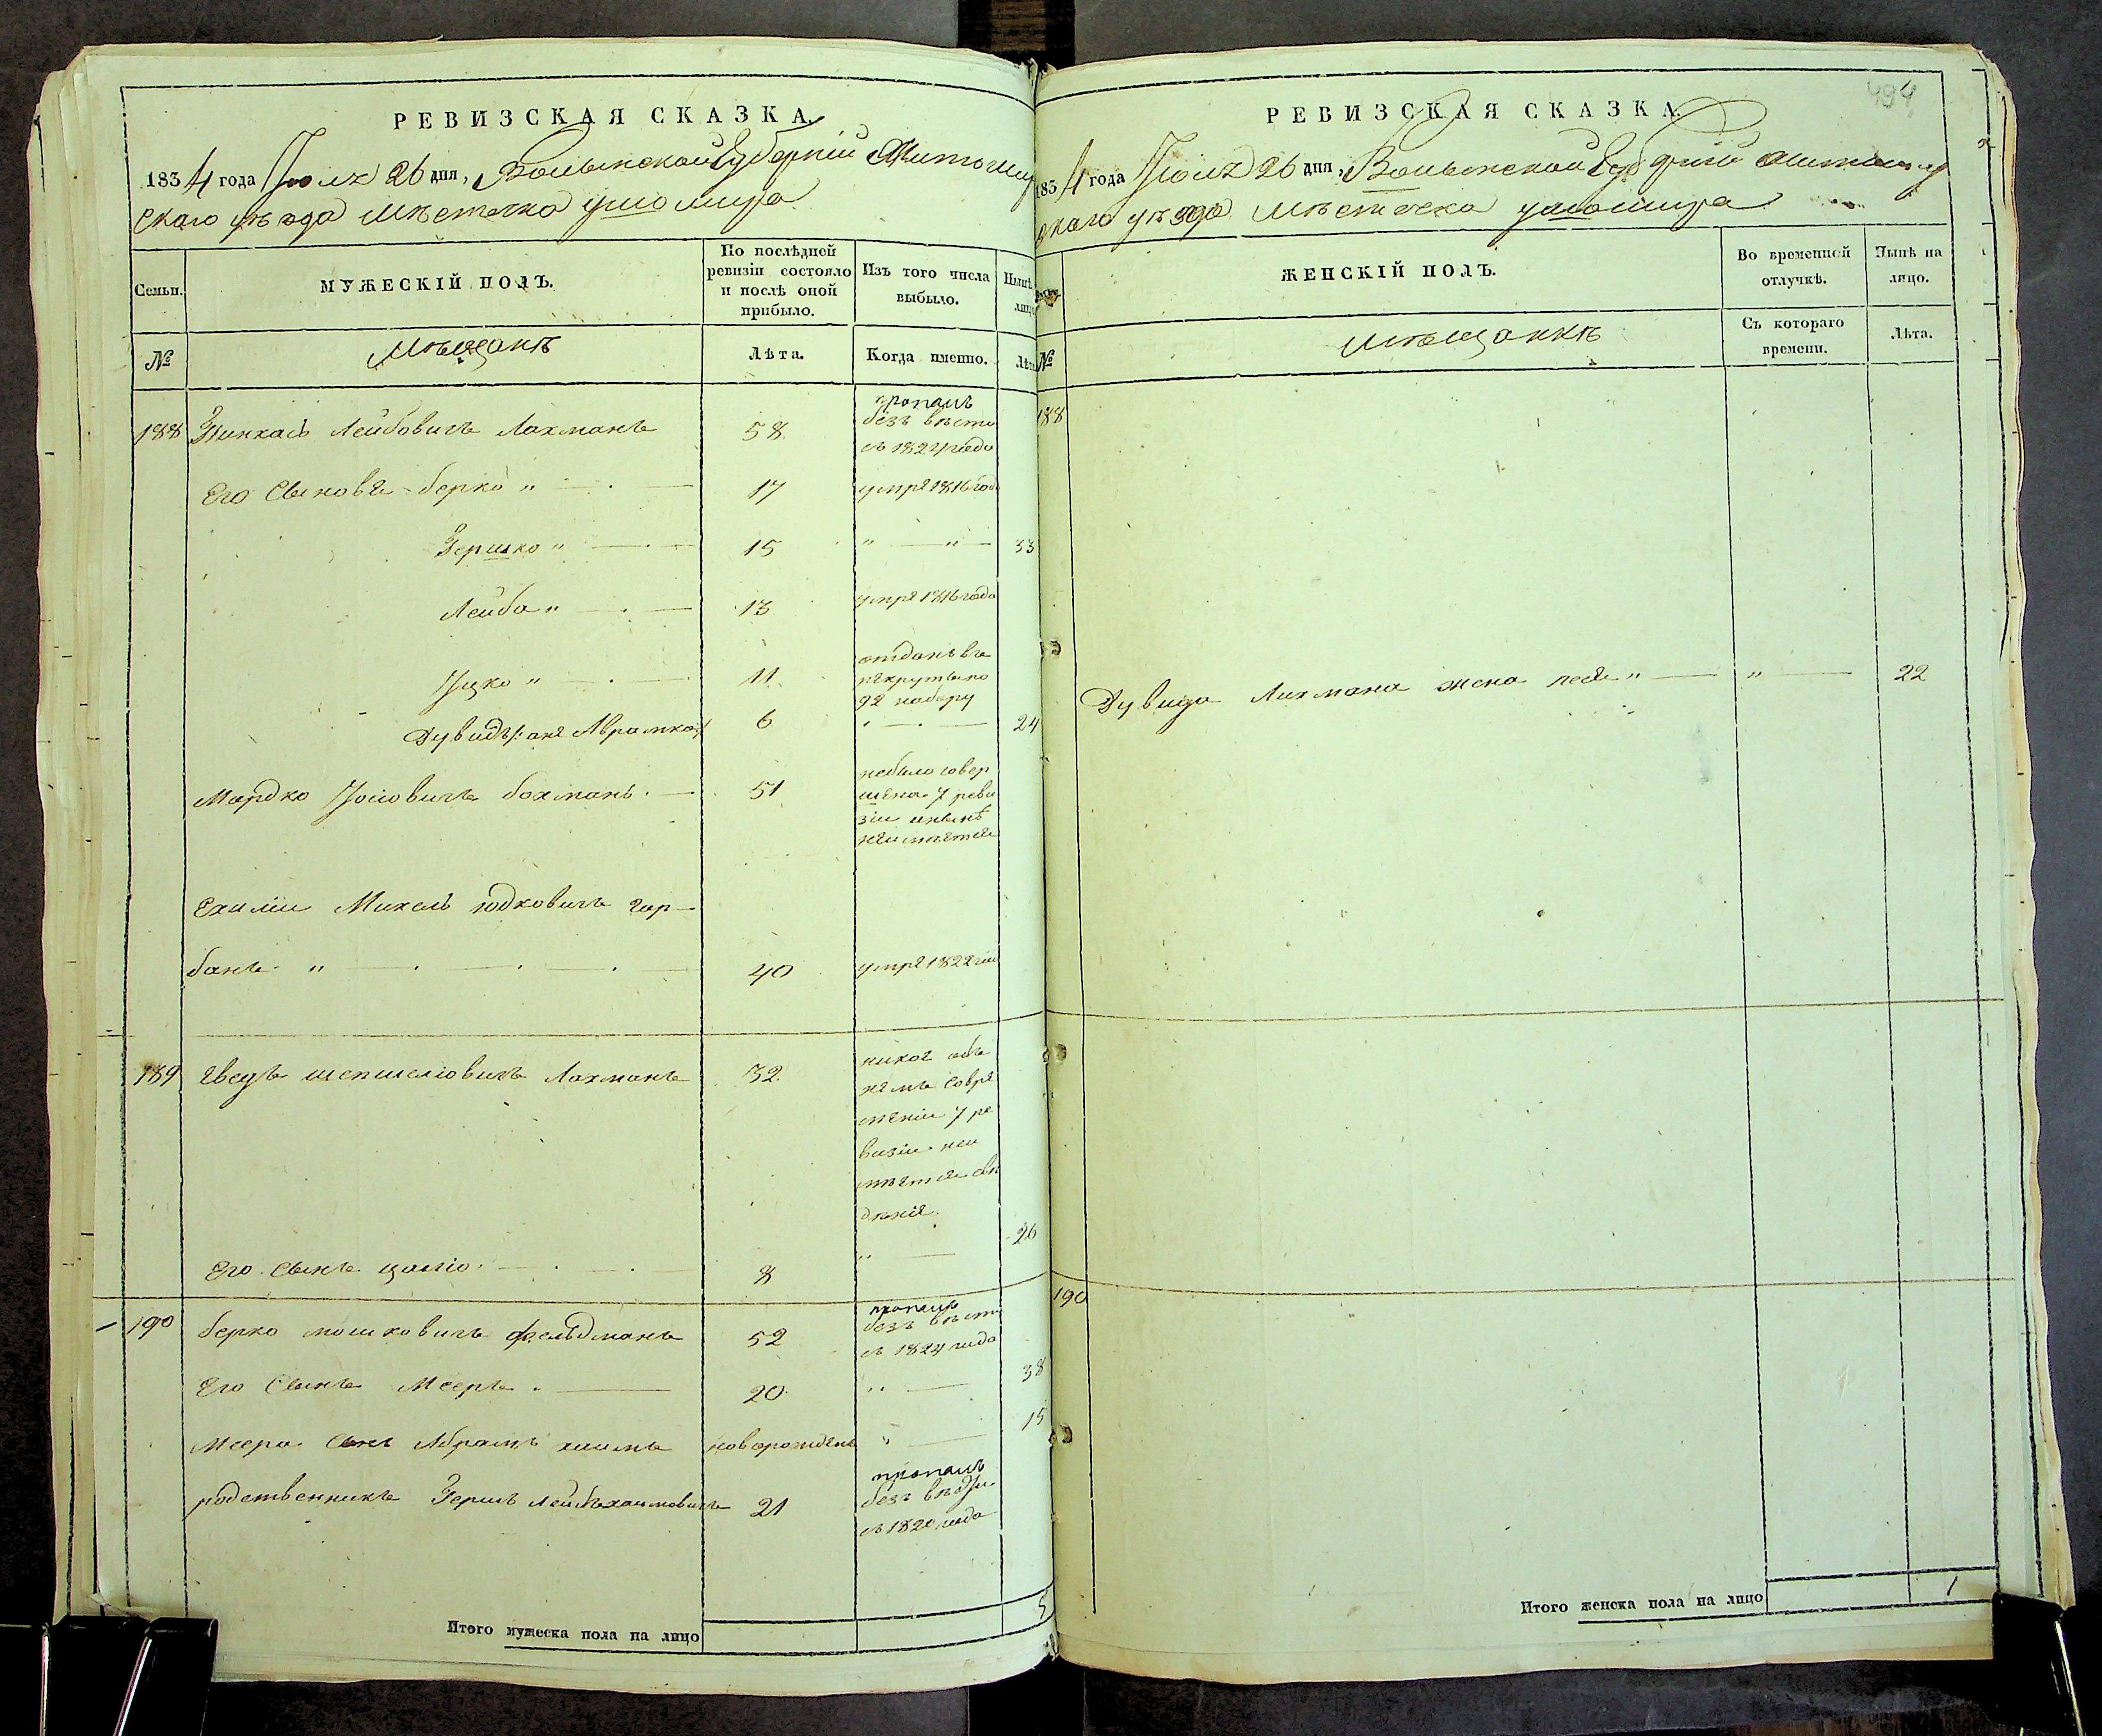 РЕВИЗСКАЯ СКАЗКА.
1834 года Июля 26 дня, Волынской Губерніи Житомир
скаго уѣзда Мѣстечка Ушомира
Семьи.
МУЖЕСКІЙ ПОЛЪ.
По послѣдней ревизіи состояло и послѣ оной прибыло.
Изъ того числа выбыло.
Нынѣ
лицо
№
Мѣщанѣ
Лѣта.
Когда именно.
Лѣта
188 Пинкасъ Лейбовичъ Лахманъ 58 пропалъ
безъ вѣсти
съ 1824 года
Его Сыновя Берко " 17 умре 1816 года
Гершко " 15 " — " — 33
Лейба " 13 умре 1816 года
Ицко " 11 отданъ въ
рекруты по
92 набору
Дувидъ /: онъ Аврамко :/ 6 " — 24
Мардко Иосіовичъ Бахманъ 51 небыло совер
шено 7 реви
зіи инынѣ
неимѣется
Ехилии Михель Юдковичъ Гар-
банъ " 40 умре 1822 года
189 шепшеліовичъ Лахманъ 32
нѣмъ совре
мѣніи 7 ре
визіи неи
мѣется свѣ
дѣнія.
Его Сынъ 8 " — 26
190 Берко Мошковичъ Фельдманъ 52 пропалъ
безъ вѣсти
съ 1824 года
Его Сынъ Мееръ 20 " — 38
Меера Сынъ Абрамъ хаимъ новорожденъ " — 15
родственникъ Гершъ Лейбъ хаимовичъ 21 пропалъ
безъ вѣсти
съ 1820 года
Итого мужеска пола на лицо 5
494
РЕВИЗСКАЯ СКАЗКА.
1834 года Июля 26 дня, Волынской Губерніи Житомир
скаго уѣзда Мѣстечка Ушомира
ЖЕНСКІЙ ПОЛЪ.
Во временной отлучкѣ.
Нынѣ на лицо.
№
Мѣщанкѣ
Съ котораго времени.
Лѣта.
188
Дувида Лахмана жена песя " — " — 22
190
Итого женска пола на лицо 1